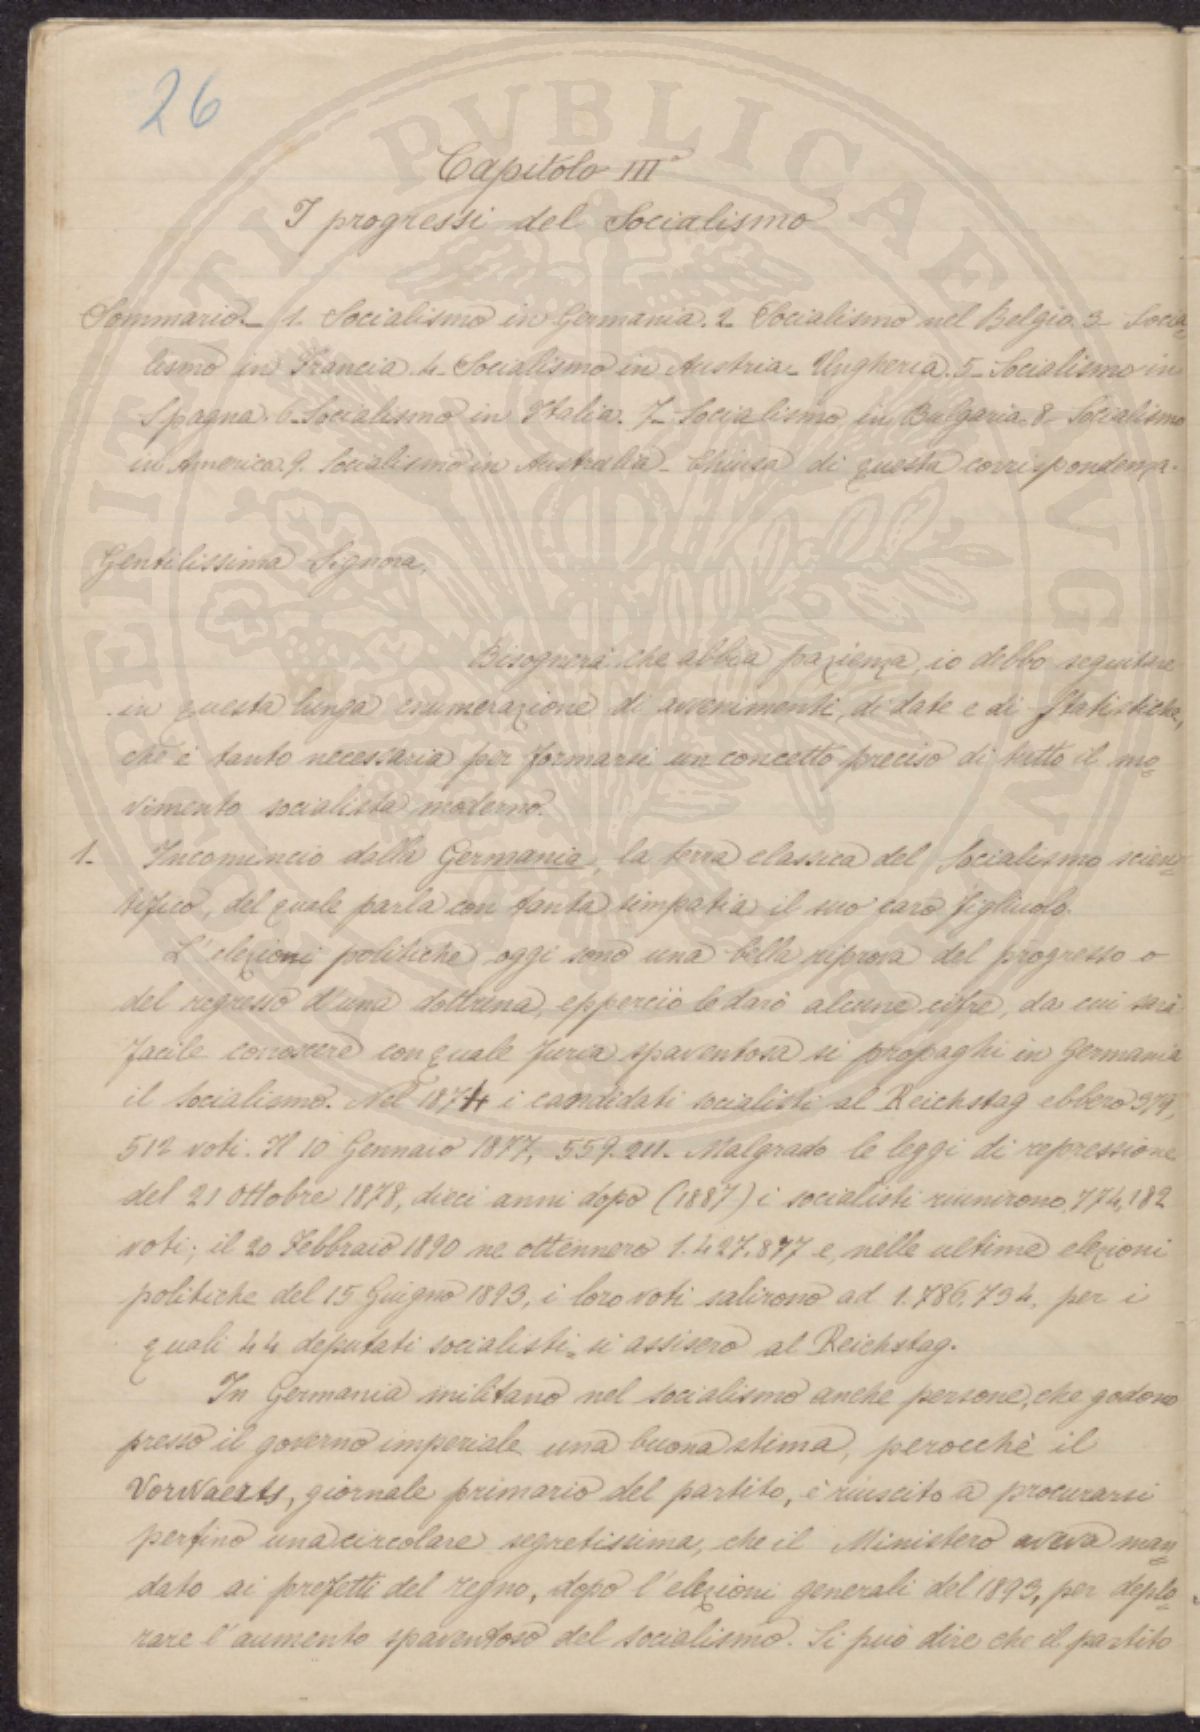 26
Capitolo III°
I progressi del Socialismo
Sommario._ 1. Socialismo in Germania. 2_ Socialismo nel Belgio. 3_ Socia=
lismo in Francia. 4_ Socialismo in Austria_ Ungheria. 5_ Socialismo in
Spagna. 6_ Socialismo in Italia. 7_ Socialismo in Bulgaria. 8_ Socialismo
in America. 9. Socialismo in Australia_ Chiusa di questa corrispondenza.
Gentilissima Signora,
Bisognerà che abbia pazienza, io debbo seguitare
in questa lunga enumerazione di avvenimenti, di date e di statistiche,
che è tanto necessaria per formarsi un concetto preciso di tutto il mo=
vimento socialista moderno.
1_ Incomincio dalla Germania, la terra classica del Socialismo scien=
tifico, del quale parla con tanta simpatia il suo caro figliuolo.
L'elezioni politiche oggi sono una bella riprova del progresso o
del regresso d'una dottrina, epperciò le darò alcune cifre, da cui sarà
facile conoscere con quale furia spaventosa si propaghi in Germania
il socialismo. Nel 1874 i candidati socialisti al Reichstag ebbero 379,
512 voti. Il 10 Gennaio 1877, 559.211. Malgrado le leggi di repressione
del 21 Ottobre 1878, dieci anni dopo (1887) i socialisti riunirono 774,182
voti; il 20 Febbraio 1890 ne ottennero 1.427.877 e, nelle ultime elezioni
politiche del 15 Giugno 1893, i loro voti salirono ad 1.786.734, per i
quali 44 deputati socialisti si assisero al Reichstag.
In Germania militano nel socialismo anche persone, che godono
presso il governo imperiale una buona stima, perocchè il
Vorwaerts, giornale primario del partito, è riuscito a procurarsi
perfino una circolare segretissima, che il Ministero aveva man=
dato ai prefetti del regno, dopo l'elezioni generali del 1893, per deplo=
rare l'aumento spaventoso del socialismo. Si può dire che il partito
PERITATI PVBLICAE AVGENDAE